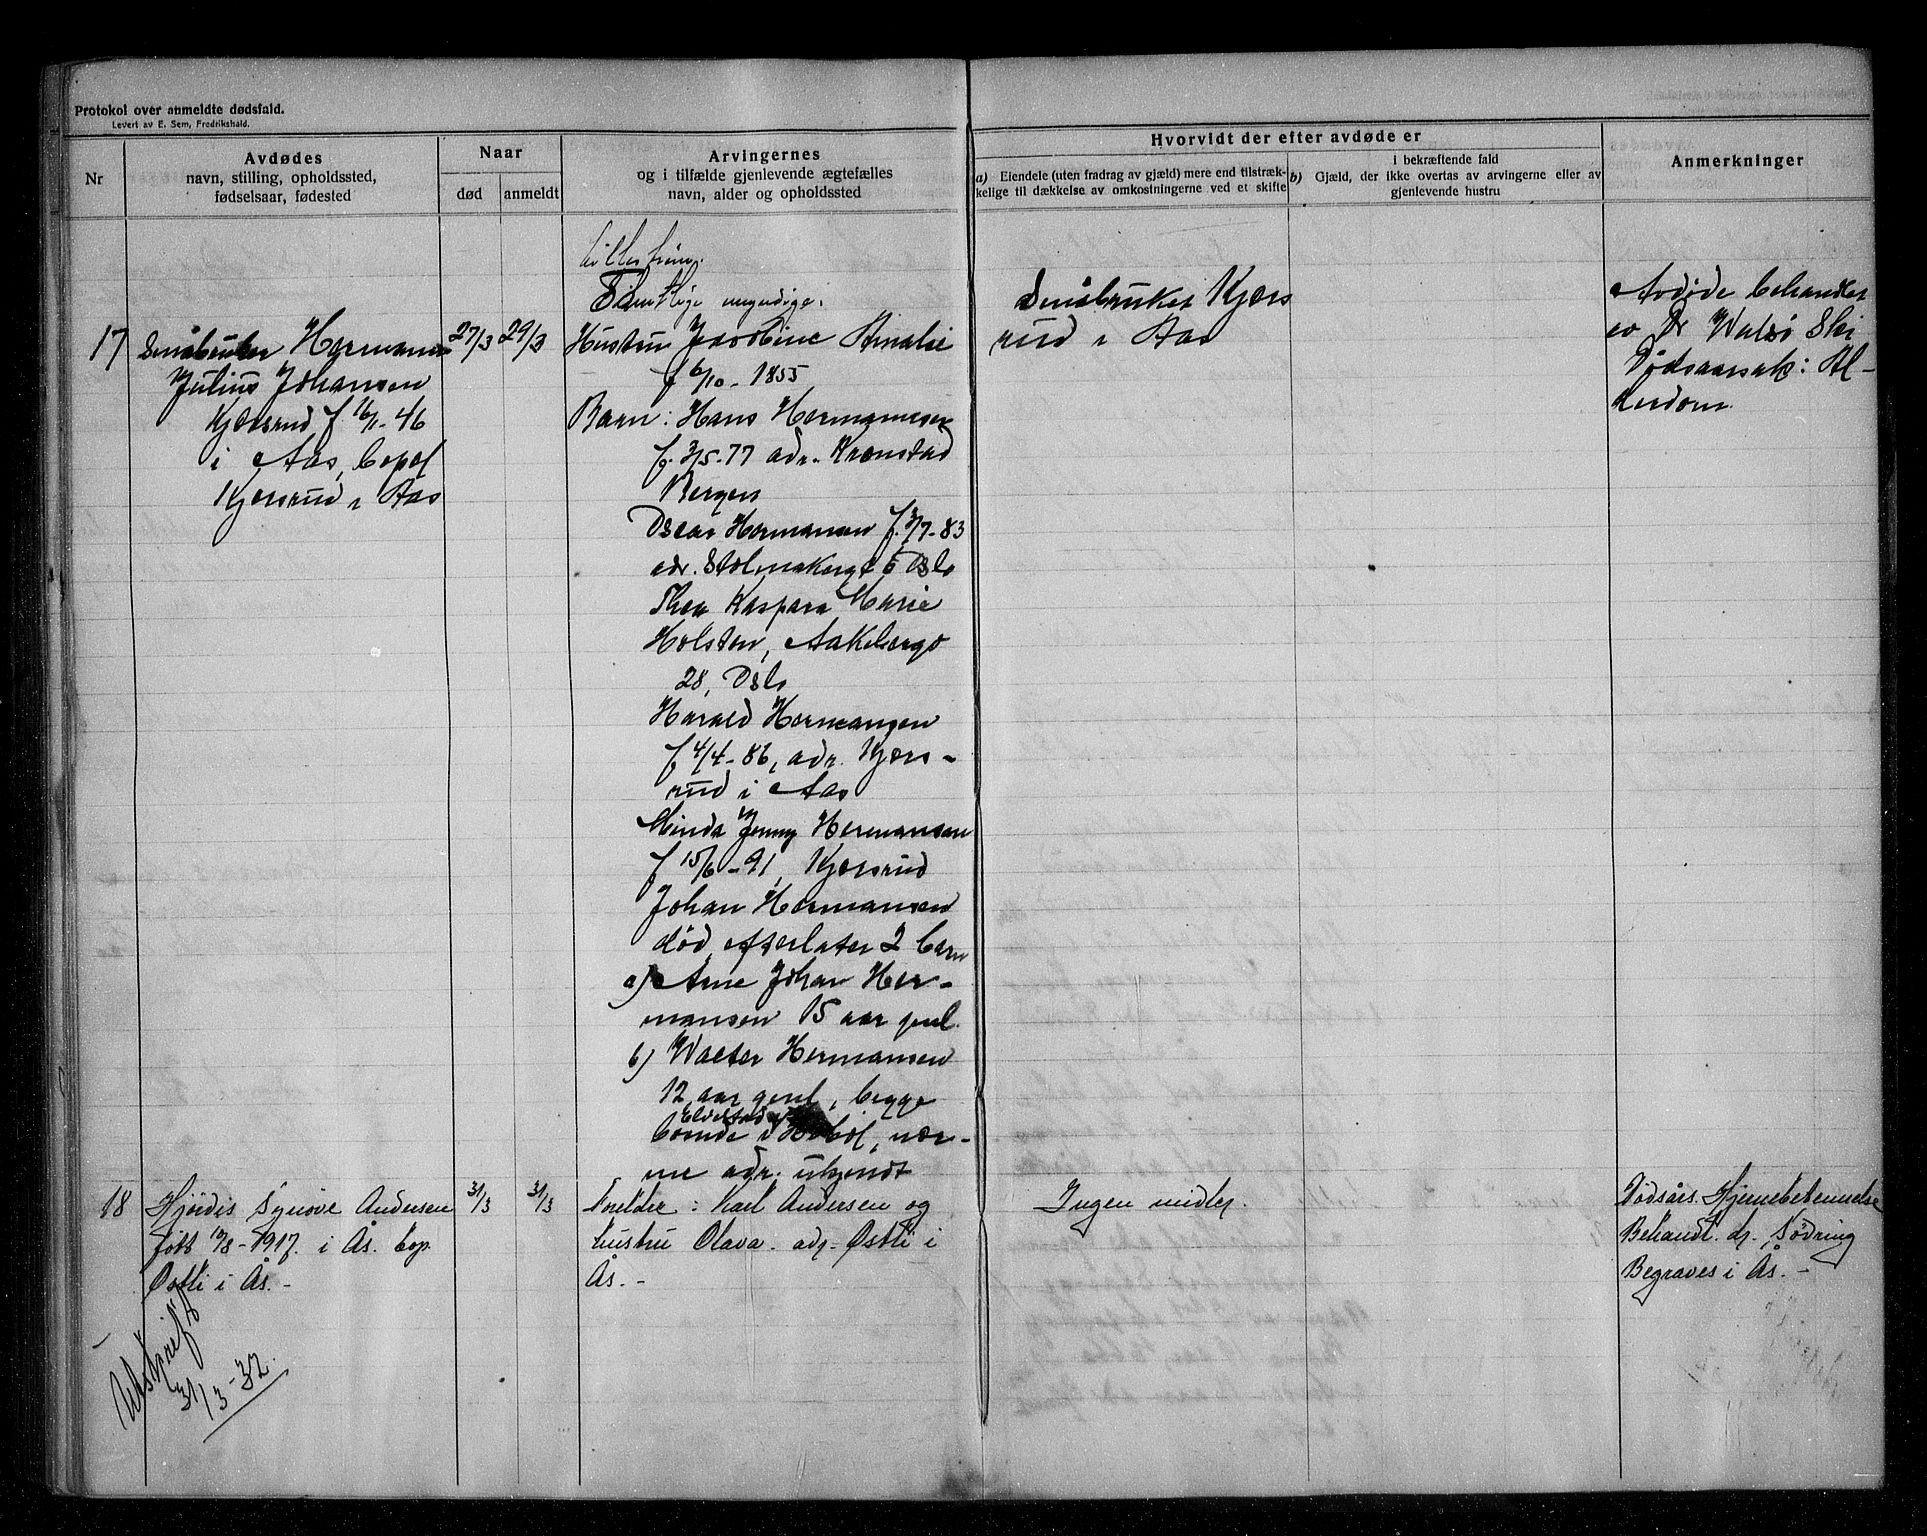 Protokol over anmeldte dødsfald.
Levert av E. Sem, Fredrikshald.
Nr
Avdødes
navn, stilling, opholdssted,
fødselsaar, fødested
Naar
død
anmeldt
Arvingernes
og i tilfælde gjenlevende ægtefælles
navn, alder og opholdssted
Hvorvidt der efter avdøde er
a) Eiendele (uten fradrag av gjæld) mere end tilstræk-
kelige til dækkelse av omkostningerne ved et skifte
i bekræftende fald
b) Gjæld, der ikke overtas av arvingerne eller av
gjenlevende hustru
Anmerkninger
Lillestrøm.
Samtlige umyndige.
17
Småbruker Hermann
Julius Johansen
Kjærsrud f. 16/1-46
i Aas, bopel
Kjærsrud i Aas
27/3
29/3
Hustru Jacobine Amalie
f 6/10-1855
Barn: Hans Hermannsen
f. 3/5-77 adr. Kronstad
Bergen
Oscar Hermansen f. 3/7-83
adr. Stolmakergt 6 Oslo
Thea Kaspara Marie
Holsten, Aakebergv
28, Oslo
Harald Hermansen
f 4/4-86, adr. Kjærs-
rud i Aas
Minda Jenny Hermansen
f 15/6-91, Kjærsrud
Johan Hermansen
død, efterlater 2 barn
a) Arne Johan Her-
mansen 15 aar gml.
b) Walter Hermansen
12 aar gml, begge
Elvestad
boende i Hobøl, nær-
me adr. ukjendt
Småbruket Kjærs
rud i Aas
Avdøde behandlet
av Dr Walsø Ski
Dødsaarsak: Al-
derdom
18
Hjørdis Synøve Andersen
født 10/8-1917. i Ås. bop.
Østli i Ås.-
31/3
31/3
Foreldre: Karl Andersen og
hustru Olava. adr. Østli i
Ås.-
Ingen midler.
Dødsårs. Hjernebetennelse
Behandl. dr. Sødring
Begraves i Ås.-
Utskrift
31/3-32.